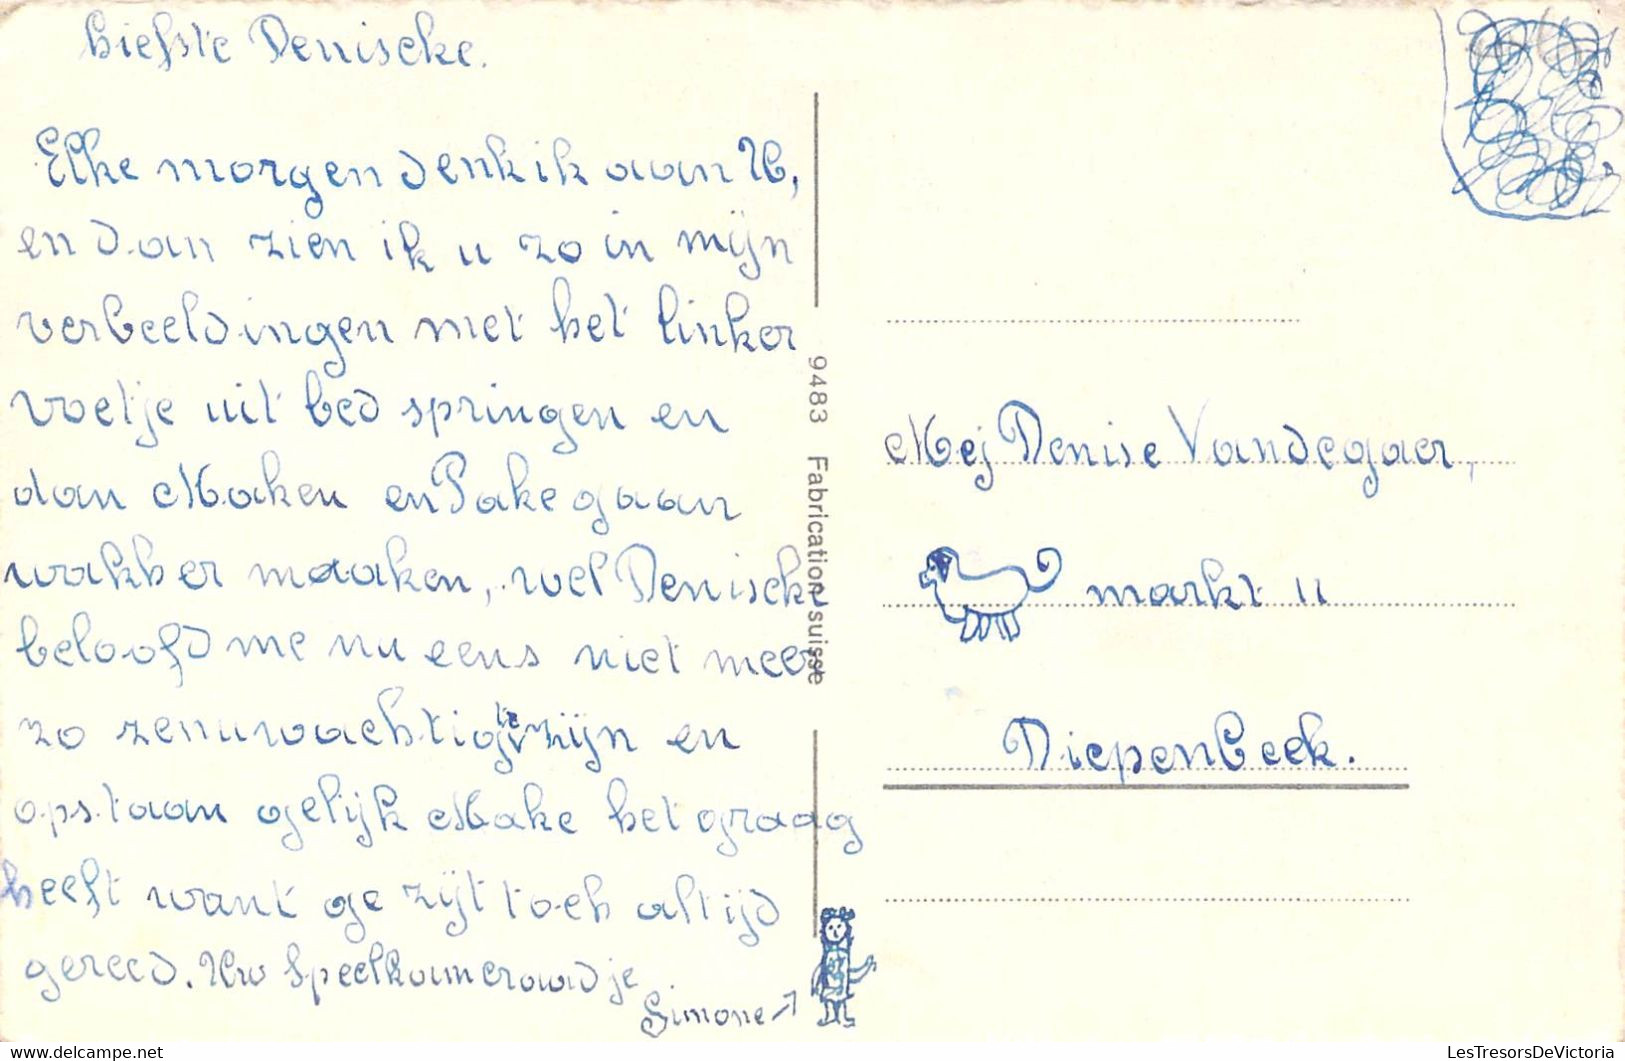 Liefste Deniseke.
Elke morgen denk ik aan U,
en dan zien ik u zo in mijn
verbeeldingen met het linker
voetje uit bed springen en
dan Maken en Pake gaan
wakker maaken, wel Deniseke
beloofd me nu eens niet meer
zo zenuwachtig te zijn en
opstaan gelijk Make het graag
heeft want ge zijt toch altijd
gereed. Uw Speelkameraadje
Simone →
9483 Fabrication suisse
Mej Denise Vandegaer,
markt 11
Diepenbeek.
LesTresorsDeVictoria.com
LesTresorsDeVictoria